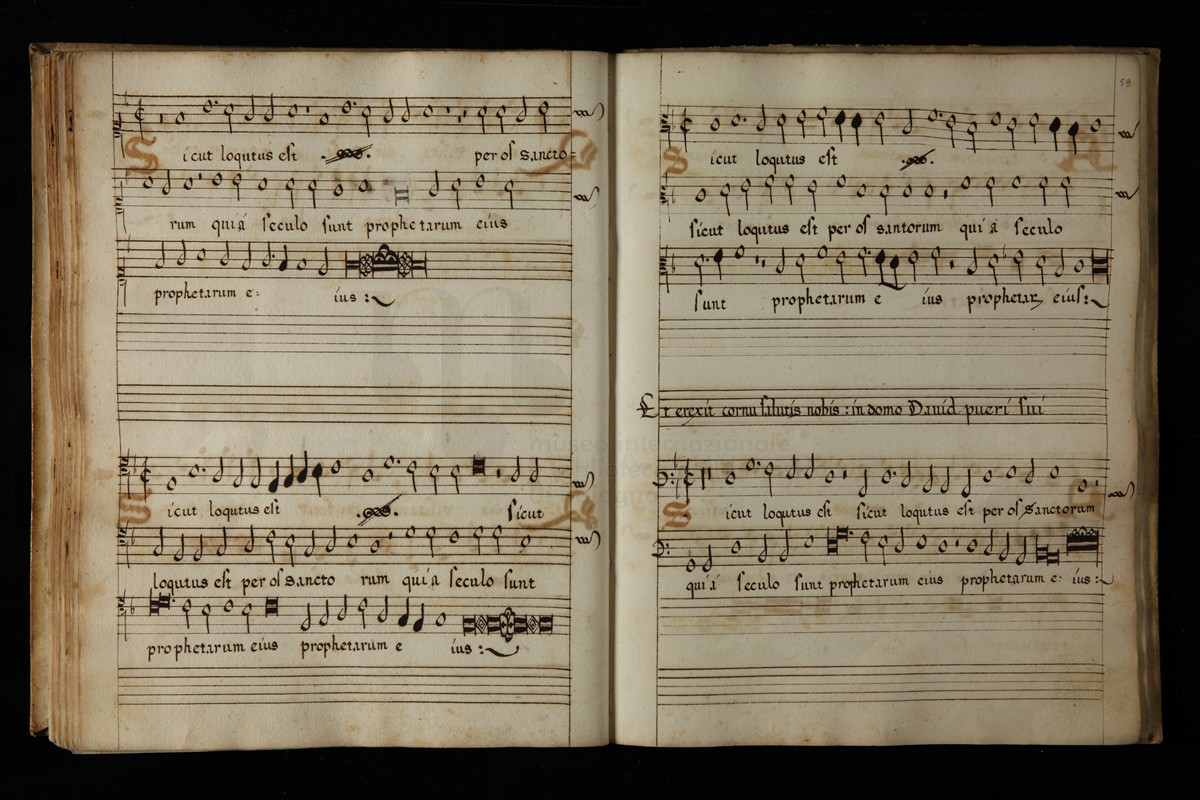 Sicut loqutus est per os sancto=
rum qui á seculo sunt prophetarum eius
prophetarum e= ius :~
Sicut loqutus est sicut
loqutus est per os sancto rum qui á seculo sunt
prophetarum eius prophetarum e ius :~
59
Sicut loqutus est
sicut loqutus est per os santorum qui á seculo
sunt prophetarum e ius prophetar eius:~
Et erexit cornu salutis nobis : in domo Dauid pueri sui
Sicut loqutus est sicut loqutus est per os Sanctorum
qui á seculo sunt prophetarum eius prophetarum e= ius :~
museo internazionale